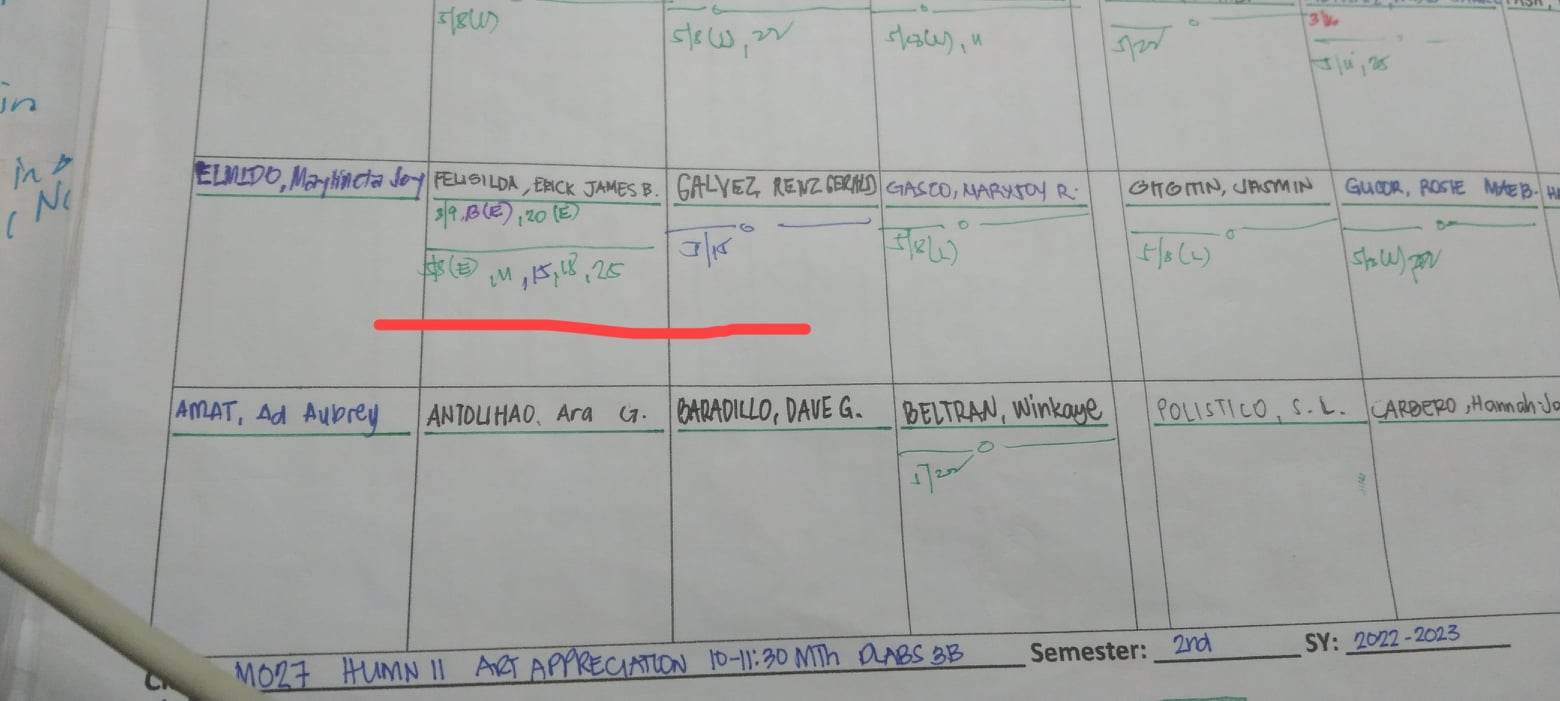 in
in
5/8(L)
5/8(L), 22
5/8(L), 11
5/22
5/11, 25
ELMIDO, Joy
FELISILDA, ERICK JAMES B.
GALVEZ, RENZ GERALD
GASCO, MARYJOY R.
JASMIN
ROSIE MAE B.
3/9, 13(E), 20(E)
5/8(E), 11, 15, 18, 25
5/15
5/8(L)
5/8(L)
AMAT, Ad Aubrey
ANTOLIHAO, Ara G.
BARADILLO, DAVE G.
BELTRAN, Winkaye
POLISTICO, S. L.
CARBERO, Hannah Jo
5/22
M027 HUMN 11 ART APPRECIATION 10-11:30 MTh DLABS 3B Semester: 2nd SY: 2022-2023